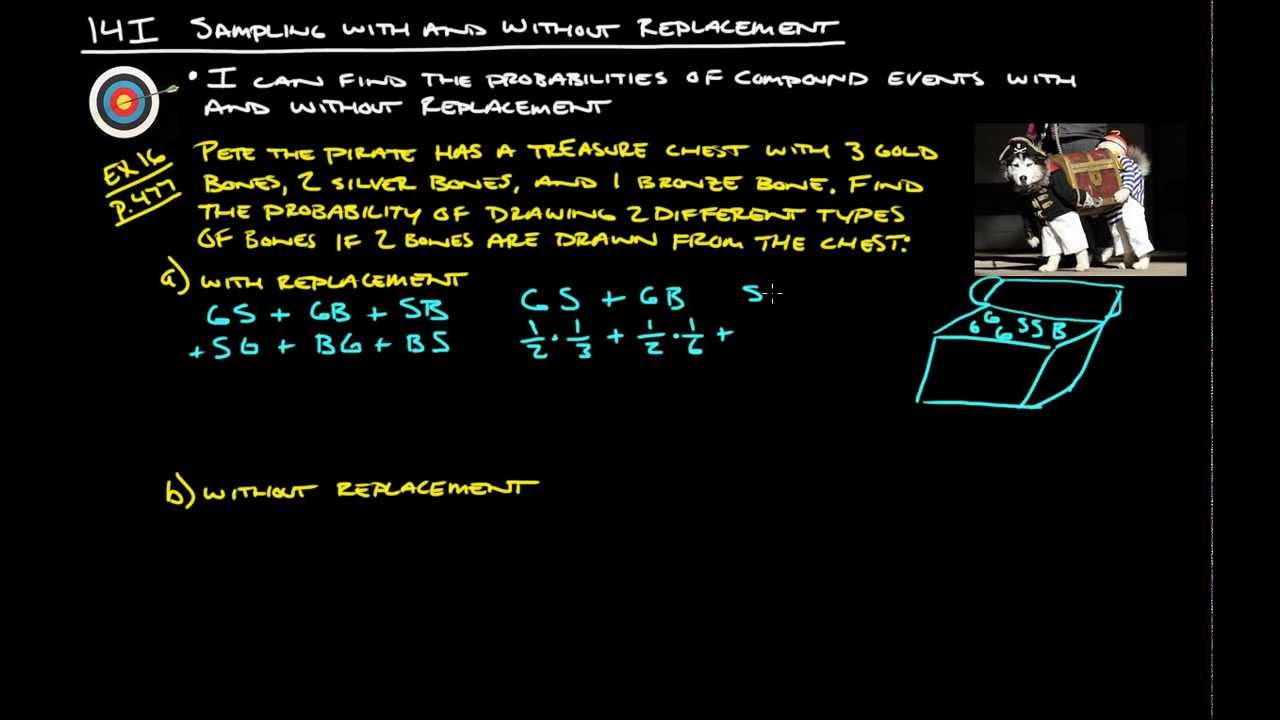 14I SAMPLING WITH AND WITHOUT REPLACEMENT
• I CAN FIND THE PROBABILITIES OF COMPOUND EVENTS WITH
AND WITHOUT REPLACEMENT
EX.16
P.477
PETE THE PIRATE HAS A TREASURE CHEST WITH 3 GOLD
BONES, 2 SILVER BONES, AND 1 BRONZE BONE. FIND
THE PROBABILITY OF DRAWING 2 DIFFERENT TYPES
OF BONES IF 2 BONES ARE DRAWN FROM THE CHEST:
a) WITH REPLACEMENT
GS + GB + SB
+ SG + BG + BS
GS + GB S
1/2 · 1/3 + 1/2 · 1/6 +
G G G S S B
b) WITHOUT REPLACEMENT